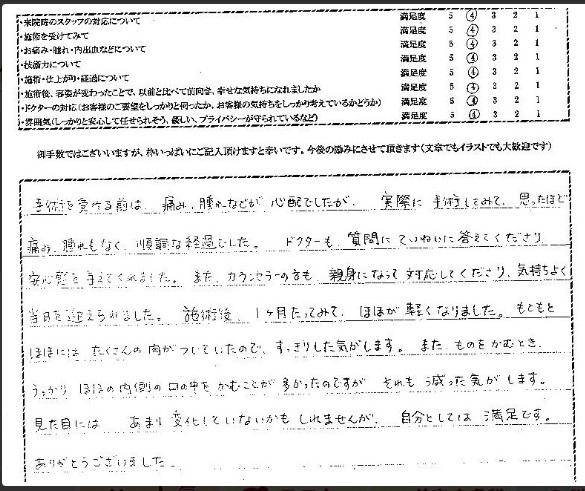 ・来院時のスタッフの対応について 満足度 5 ④ 3 2 1
・施術を受けてみて 満足度 5 ④ 3 2 1
・お痛み・腫れ・内出血などについて 満足度 5 ④ 3 2 1
・技術力について 満足度 5 ④ 3 2 1
・施術・仕上がり・経過について 満足度 5 ④ 3 2 1
・施術後、容姿が変わったことで、以前と比べて前向き、幸せな気持ちになれましたか 満足度 5 ④ 3 2 1
・ドクターの対応(お客様のご要望をしっかりと伺ったか、お客様の気持ちをしっかり考えているかどうか) 満足度 5 ④ 3 2 1
・雰囲気(しっかりと安心して任せられそう、優しい、プライバシーが守られているなど) 満足度 5 ④ 3 2 1
御手数ではございいますが、枠いっぱいにご記入頂けますと幸いです。今後の励みにさせて頂きます(文章でもイラストでも大歓迎です)
手術を受ける前は、痛み、腫れなどが心配でしたが、実際に手術してみて、思ったほど
痛み、腫れもなく、順調な経過でした。ドクターも、質問にていねいに答えてくださり、
安心感を与えてくれました。また、カウンセラーの方も、親身になって対応してくださり、気持ちよく
当日を迎えられました。施術後、1ヶ月たってみて、ほほが軽くなりました。もともと
ほほには たくさんの肉がついていたので、すっきりした気がします。また、ものをかむとき、
うっかり ほほの内側の口の中をかむことが多かったのですが、それも減った気がします。
見た目には あまり変化していないかもしれませんが、自分としては満足です。
ありがとうございました。